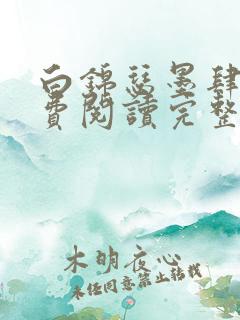 白錦瑟墨肆
費閱讀完整
木明夜心
未经同意禁止转载